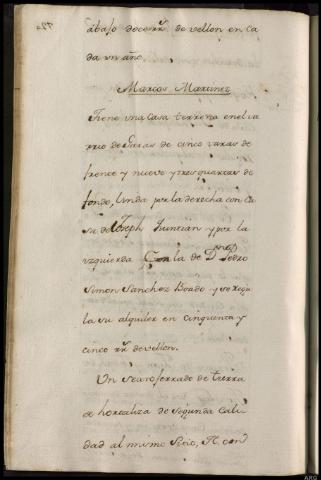 abajo doce rr.s de vellon en ca
da un año.
Marcos Martinez
Tiene una Casa terrena en el va
rrio de de cinco varas de
frente y nueve y tres quartas de
fondo, linda por la derecha con Ca
sa de Joseph y por la
yzquierda Con la de D.n Pedro
Simon Sanchez Boado y se regu
la su alquiler en cinquenta y
cinco rr.s de vellon.
Un ferrado de tierra
a hortaliza de segunda Cali
dad al mismo Sitio, N. con